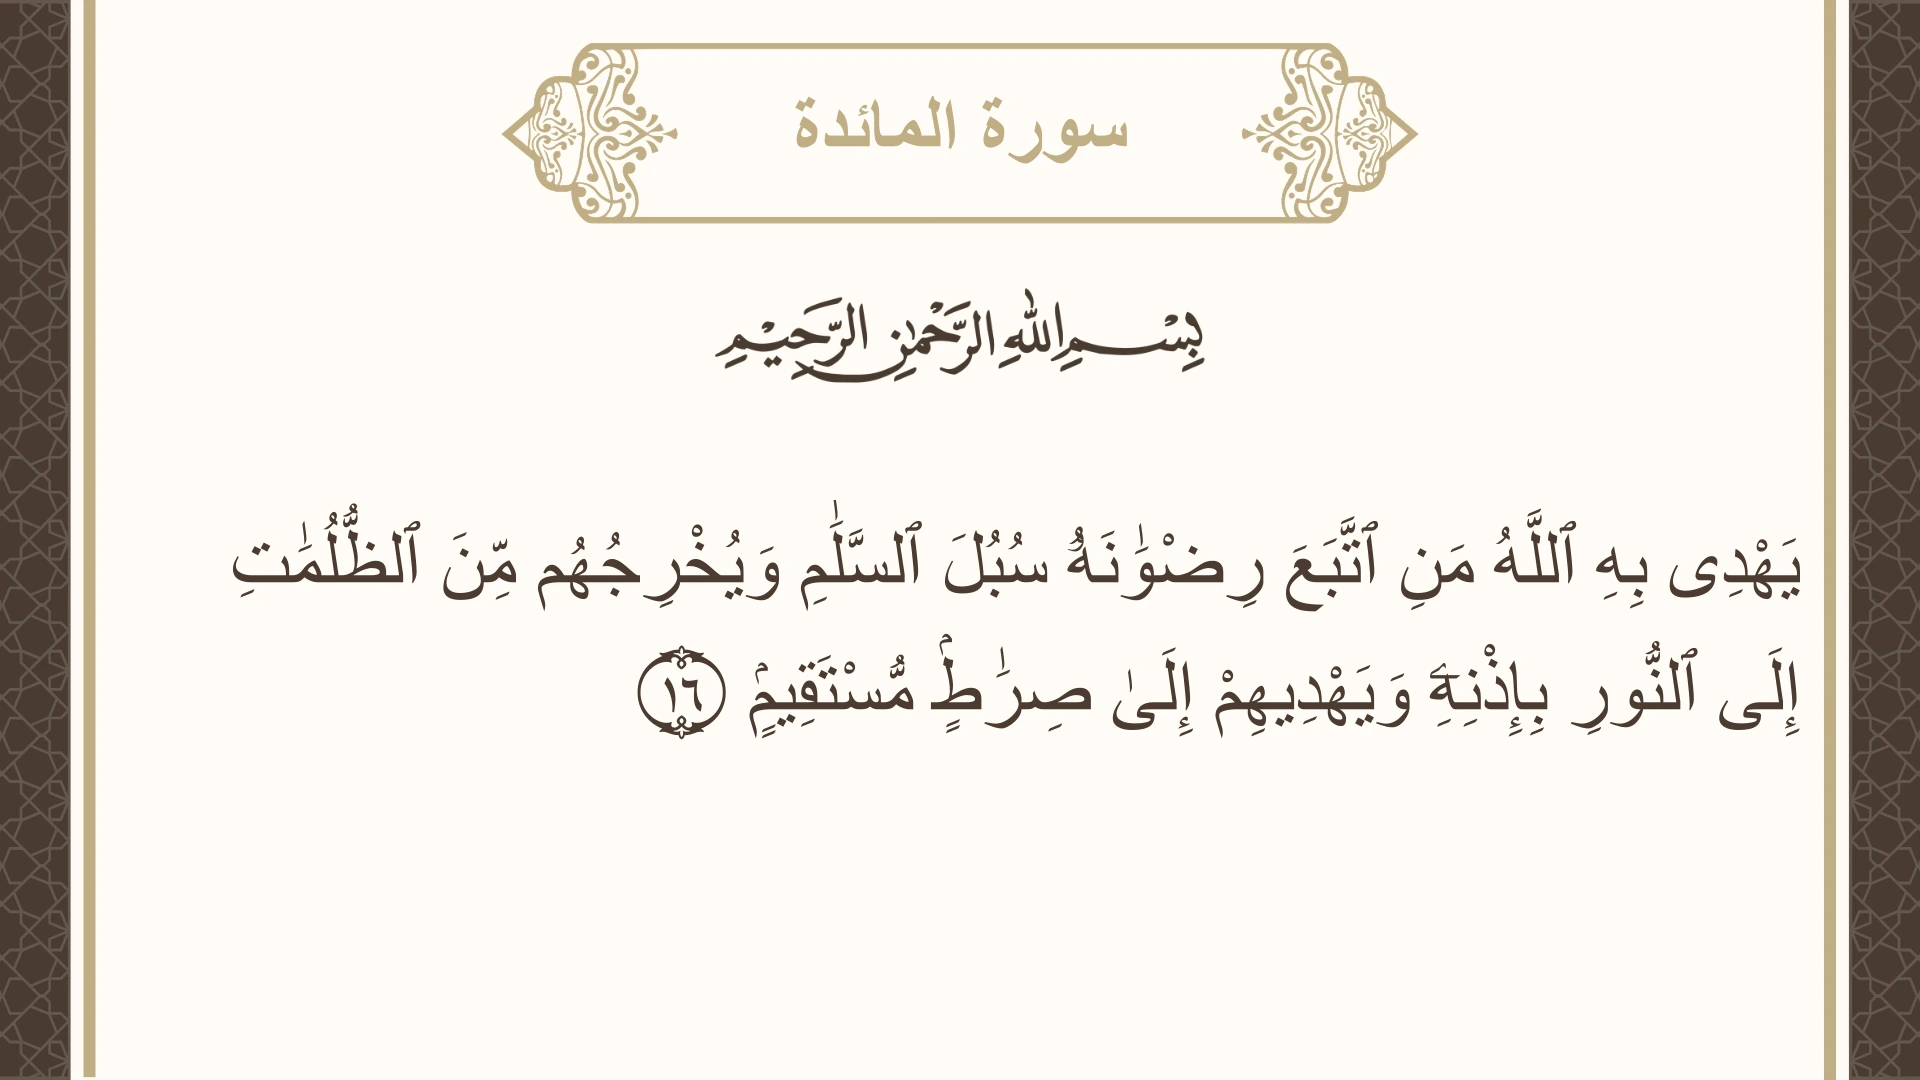 سورة المائدة
بِسْمِ اللهِ الرَّحْمٰنِ الرَّحِيْمِ
يَهْدِى بِهِ ٱللَّهُ مَنِ ٱتَّبَعَ رِضْوَٰنَهُۥ سُبُلَ ٱلسَّلَٰمِ وَيُخْرِجُهُم مِّنَ ٱلظُّلُمَٰتِ
إِلَى ٱلنُّورِ بِإِذْنِهِۦ وَيَهْدِيهِمْ إِلَىٰ صِرَٰطٍۢ مُّسْتَقِيمٍۢ ١٦